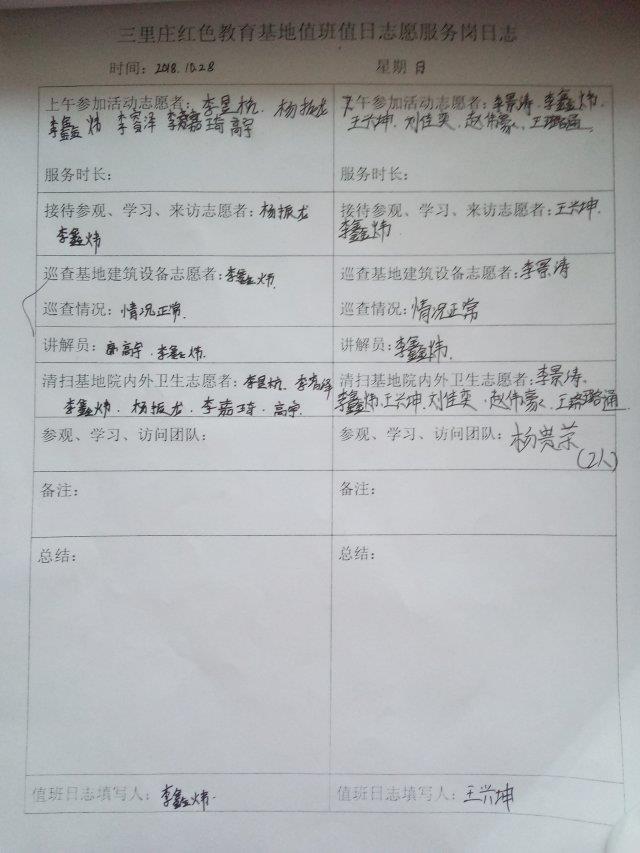 三里庄红色教育基地值班值日志愿服务岗日志
时间：2018.10.28 星期 日
上午参加活动志愿者：李昱杭、杨振龙
李鑫炜 李 李嘉琦 高宇
服务时长：
下午参加活动志愿者：李景涛、李鑫炜、
王兴坤、刘佳奕、赵伟豪、王璐通
服务时长：
接待参观、学习、来访志愿者：杨振龙
李鑫炜
接待参观、学习、来访志愿者：王兴坤、
李鑫炜
巡查基地建筑设备志愿者：李鑫炜.
巡查情况：情况正常.
巡查基地建筑设备志愿者：李景涛
巡查情况：情况正常
讲解员：高宇.李鑫炜.
讲解员：李鑫炜.
清扫基地院内外卫生志愿者：李昱杭、李
李鑫炜.杨振龙.李嘉琦.高宇
清扫基地院内外卫生志愿者：李景涛、
李鑫炜、王兴坤、刘佳奕、赵伟豪、王璐通
参观、学习、访问团队：
参观、学习、访问团队：杨贵荣
（2人）
备注：
备注：
总结：
总结：
值班日志填写人：李鑫炜.
值班日志填写人：王兴坤